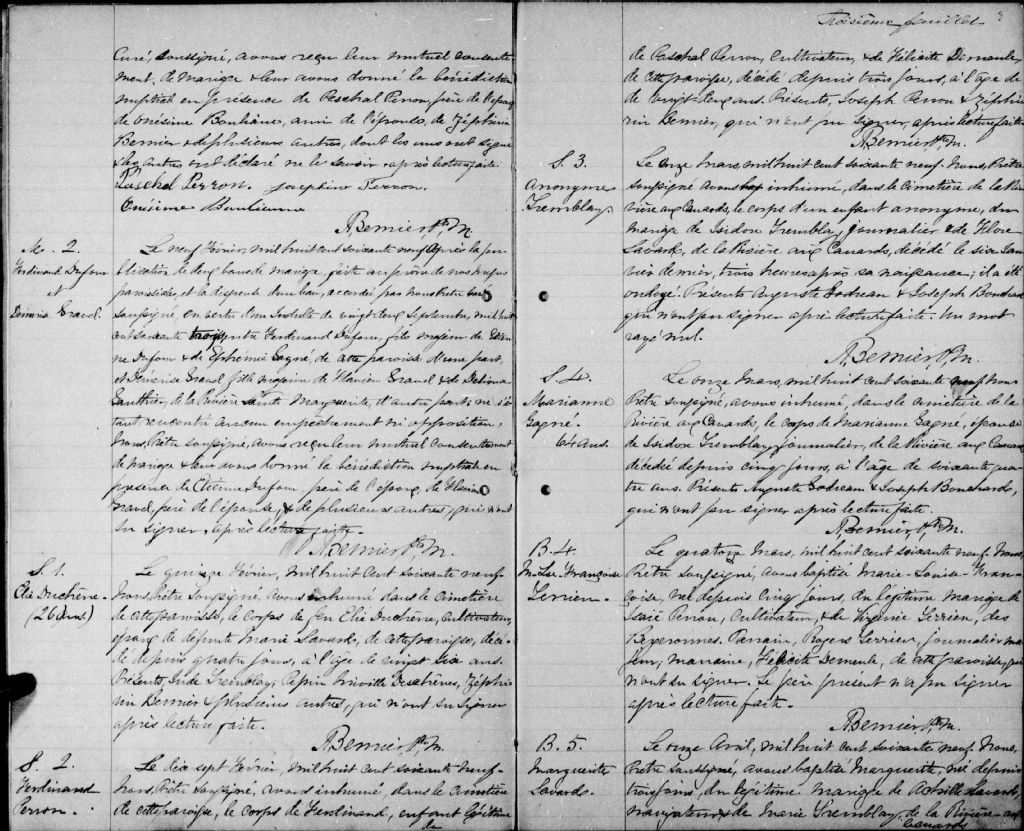 Curé, soussigné, avons reçu leur mutuel consente
ment de mariage & leur avons donné la bénédiction
nuptiale en présence de Paschal Perron, père de l'époux
de Onésime Bouliane, ami de l'épouse, de Zéphirin
Bernier & de plusieurs autres, dont les uns ont signé
& les autres ont déclaré ne le savoir après lecture faite.
Paschal Perron. Josephine Perron.
Onésime Boulianne
N Bernier Ptre M.
M. 2.
Ferdinand Dufour
et
Gravel.
Le neuf Février, mil huit cent soixante neuf, après la pu-
blication de deux bans de mariage, faite au prône de nos messes
paroissiales, et la dispense d'un ban, accordée par nous Prêtre Curé
soussigné, en vertu d'un Indult de vingt-deux Septembre, mil huit
cent soixante trois, entre Ferdinand Dufour, fils majeur de Etien
ne Dufour & de Euphrémie Gagné, de cette paroisse d'une part,
et Gravel fille majeure de Flavien Gravel & de Delima
Gauthier, de la Rivière Sainte Marguerite, d'autre part; ne s'é-
tant rencontré aucun empêchement ni opposition,
Nous, Prêtre soussigné, avons reçu leur mutuel consentement
de mariage & leur avons donné la bénédiction nuptiale en
présence de Etienne Dufour, père de l'époux, de Flavien
Gravel, père de l'épouse, & de plusieurs autres, qui n'ont
su signer, après lecture faite.
N Bernier Ptre M.
S. 1.
Elie Duchêne.
(26 ans.)
Le quinze Février, mil huit cent soixante neuf
Nous, Prêtre soussigné, avons inhumé dans le cimetière
de cette paroisse, le corps de feu Elie Duchêne, cultivateur,
époux de défunte Marie Savard, de cette paroisse, décé-
dé depuis quatre jours, à l'âge de vingt six ans.
Présents, Jude Tremblay, Pépin Deschênes, Zéphi-
rin Bernier & plusieurs autres, qui n'ont su signer
après lecture faite.
N Bernier Ptre M.
S. 2.
Ferdinand
Perron.
Le dix sept Février, mil huit cent soixante neuf
Nous, Prêtre soussigné, avons inhumé, dans le cimetière
de cette paroisse, le corps de Ferdinand, enfant légitime
de
Troisième feuillet 3
de Paschal Perron, Cultivateur, & de Félicité Demeule,
de cette paroisse, décédé depuis trois jours, à l'âge de
de vingt-deux ans. Présents, Joseph Perron & Zéphi
rin Bernier, qui n'ont pu signer, après lecture faite.
N Bernier Ptre M.
S. 3.
Anonyme
Tremblay.
Le onze Mars, mil huit cent soixante neuf. Nous, Prêtre
soussigné avons inhumé, dans le Cimetière de la Ri-
vière aux Canards, le corps d'un enfant anonyme, du
mariage de Isidore Tremblay, journalier & de Flore
Savard, de la Rivière aux Canards, décédé le six Jan
vier dernier, trois heures après sa naissance; il a été
ondoyé. Présents Auguste Godreau & Joseph Bouchard
qui n'ont pu signer après lecture faite. Un mot
rayé nul.
N Bernier Ptre M.
S. 4.
Marianne
Gagné.
64 ans.
Le onze Mars, mil huit cent soixante neuf Nous
Prêtre soussigné, avons inhumé, dans le cimetière de la
Rivière aux Canards, le corps de Marianne Gagné, épouse
de Isidore Tremblay, journalier, de la Rivière aux Canards,
décédée depuis cinq jours, à l'âge de soixante qua-
tre ans. Présents Auguste Godreau & Joseph Bouchard,
qui n'ont pu signer après lecture faite.
N Bernier, Ptre M.
B. 4
M. Lse Françoise
Perron.
Le quatorze Mars, mil huit cent soixante neuf. Nous,
Prêtre soussigné, avons baptisé Marie-Louise-Fran-
çoise, née depuis cinq jours, du légitime mariage de
Isaïe Perron, Cultivateur, & de Virginie Serrien, des
Bergeronnes. Parrain, Rogers Serrien, journalier ma-
jeur, marraine, Félicité Demeule, de cette paroisse, qui
n'ont su signer. Le père présent n'a pu signer
après lecture faite.
N Bernier, Ptre M.
B. 5.
Marguerite
Savard.
Le onze Avril, mil huit cent soixante neuf. Nous,
Prêtre soussigné, avons baptisé Marguerite, née depuis
trois jours, du légitime mariage de Achille Savard,
navigateur & de Marie Tremblay, de la Rivière-aux
Canards